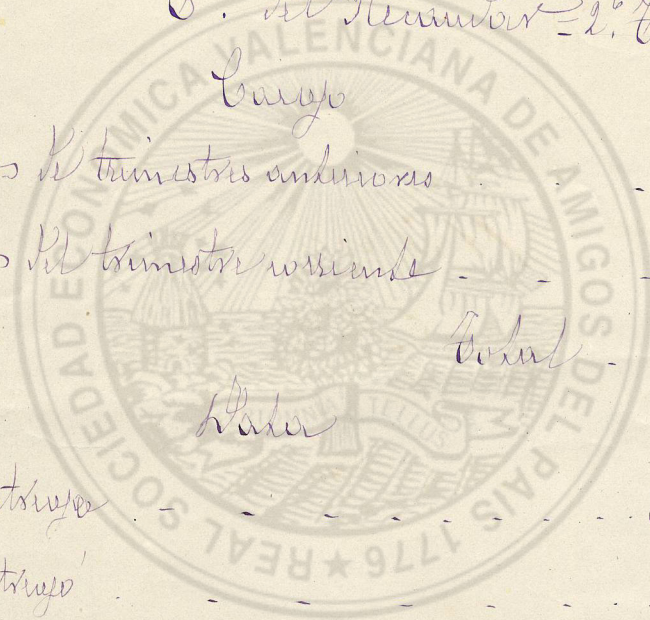 del Recaudador = 2º T
Cargo
s de trimestres anteriores . . -
s del trimestre corriente - - -
Total -
Data
REAL SOCIEDAD ECONOMICA VALENCIANA DE AMIGOS DEL PAIS 1776 ★